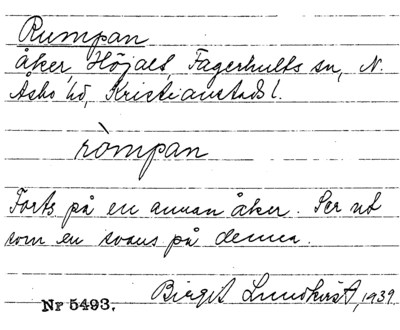 Rumpan
åker, Höjalt, Fagerhults sn, N.
Åsbo hd, Kristianstads l.
ròmpan
Forts på en annan åker. Ser ut
som en svans på denna.
Birgit Lundkvist, 1939.
Nr 5493.